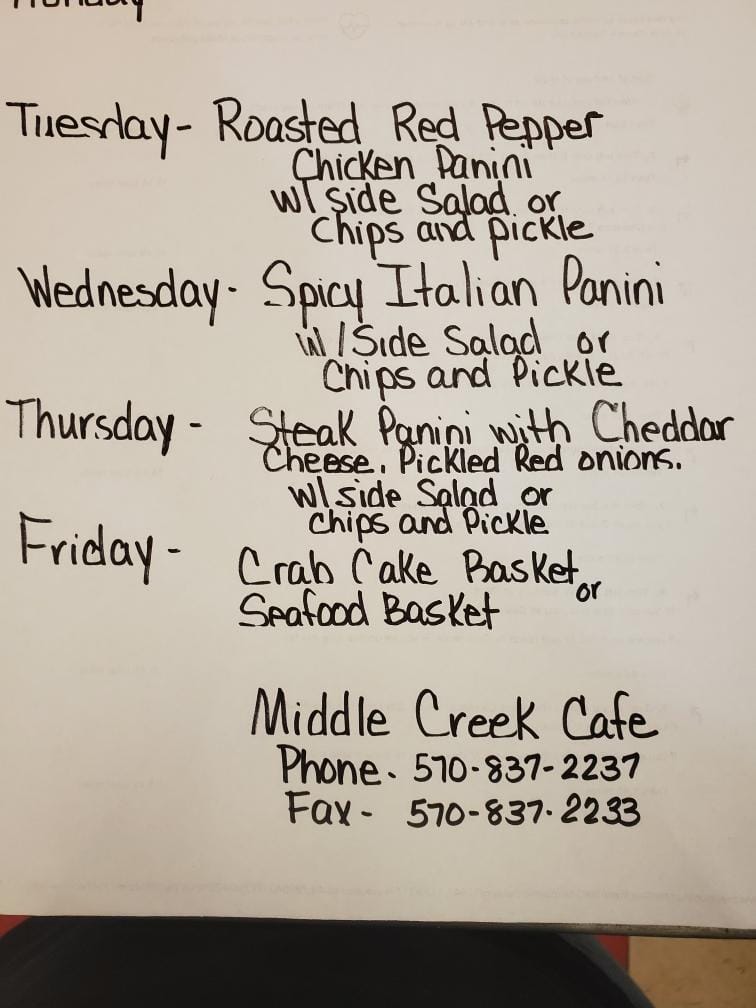 Monday
Tuesday- Roasted Red Pepper
Chicken Panini
w/ side Salad or
Chips and pickle
Wednesday- Spicy Italian Panini
W/Side Salad or
Chips and Pickle
Thursday- Steak Panini with Cheddar
Cheese. Pickled Red onions.
w/ side Salad or
Chips and Pickle
Friday- Crab Cake Basket or
Seafood Basket
Middle Creek Cafe
Phone- 570-837-2237
Fax- 570-837-2233